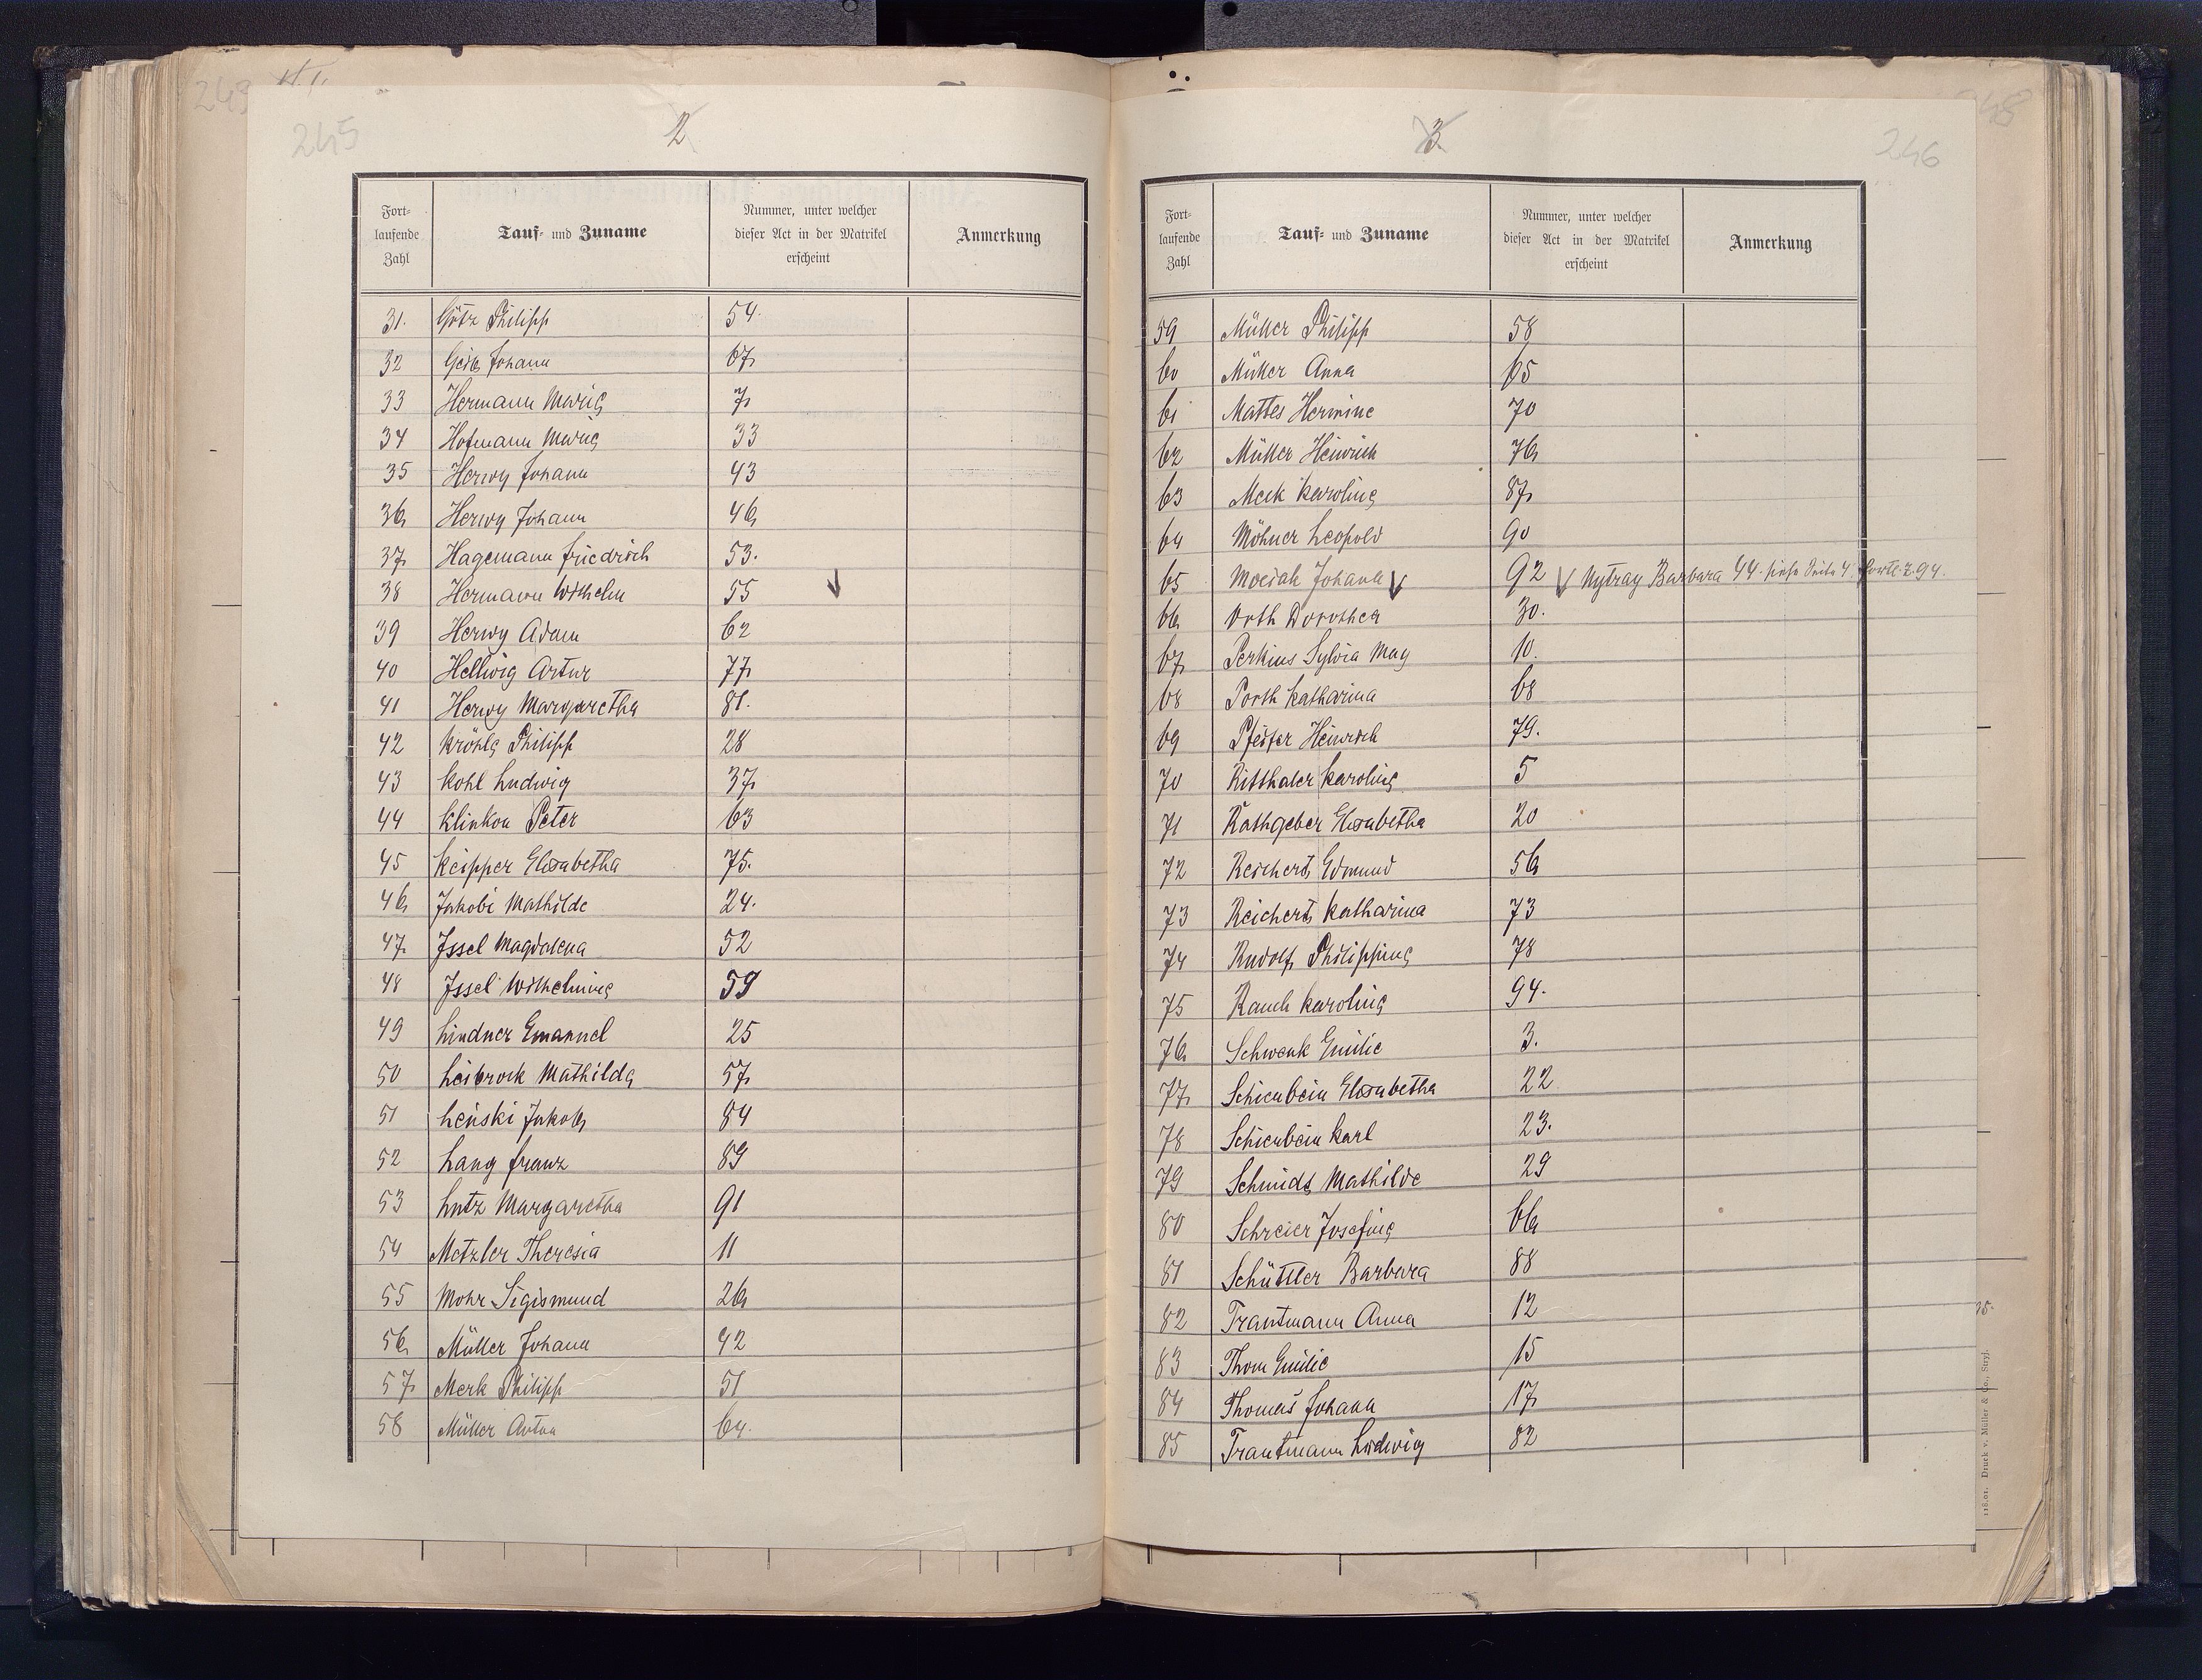 245
2
Fort-
laufende
Zahl
Tauf- und Zuname
Nummer, unter welcher
dieser Act in der Matrikel
erscheint
Anmerkung
31. Götz Philipp 54.
32 Geib Johann 67
33 Hermann Marie 7
34 Hofmann Marie 33
35 Herwy Johann 43
36 Herwy Johann 46
37 Hagemann Friedrich 53.
38 Hermann Wilhelm 55
39 Herwy Adam 62
40 Hellwig Artur 77
41 Herwy Margaretha 81.
42 Kröhle Philipp 28
43 Kohl Ludwig 37
44 Klinkou Peter 63
45 Keipper Elisabetha 75.
46 Jakobi Mathilde 24.
47 Issel Magdalena 52
48 Issel Wilhelmine 59
49 Lindner Emanuel 25
50 Leibrock Mathilde 57
51 Lenski Jakob 84
52 Lang Franz 89
53 Lutz Margaretha 91
54 Metzler Theresia 11
55 Mohr Sigismund 26
56 Müller Johann 42
57 Merk Philipp 51
58 Müller Anton 64.
246
3
Fort-
laufende
Zahl
Tauf- und Zuname
Nummer, unter welcher
dieser Act in der Matrikel
erscheint
Anmerkung
59 Müller Philipp 58
60 Müller Anna 65
61 Mattes Hermine 70
62 Müller Heinrich 76
63 Meck Karoline 87
64 Möhner Leopold 90
65 Johann 92 Nytray Barbara 44. siehe Seite 4. Fortl. Z. 94.
66 Orth Dorothea 30.
67 Perkins Sylvia May 10.
68 Porth Katharina 68
69 Pfeifer Heinrich 79.
70 Ritthaler Karoline 5
71 Rathgeber Elisabetha 20
72 Reichert Edmund 56
73 Reichert Katharina 73
74 Rudolf Philippine 78
75 Rauch Karoline 94.
76 Schwenk Emilie 3.
77 Schienbein Elisabetha 22
78 Schienbein Karl 23.
79 Schmidt Mathilde 29
80 Schreier Josefine 66
81 Schüttler Barbara 88
82 Trautmann Anna 12
83 Thom Emilie 15
84 Thomas Johann 17
85 Trautmann Ludwig 82
118.01. Druck v. Müller & Co., Stryj.